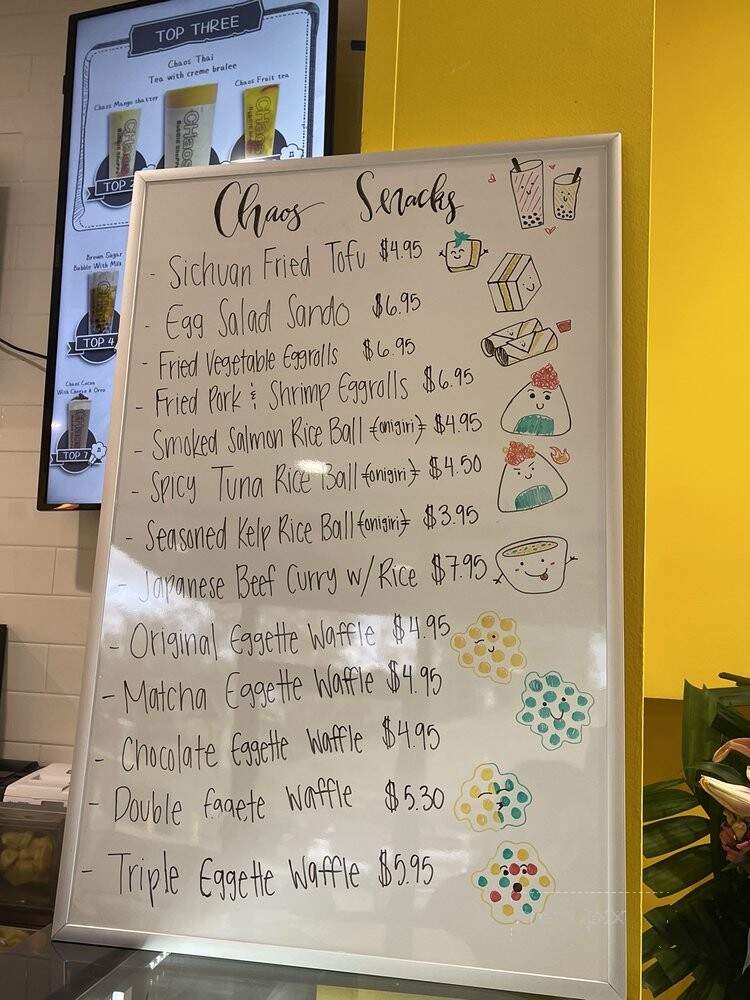 TOP THREE
Chaos Thai
Tea with creme brulee
Chaos Mango shatter
Chaos Fruit tea
CHaos
CHaos
TOP
Brown Sugar
Bubble With Milk
TOP 4
Chaos Cocoa
With Cheese & Oreo
TOP 7
Chaos Snacks
- Sichuan Fried Tofu $4.95
- Egg Salad Sando $6.95
- Fried Vegetable Eggrolls $6.95
- Fried Pork & Shrimp Eggrolls $6.95
- Smoked Salmon Rice Ball (onigiri) $4.95
- Spicy Tuna Rice Ball (onigiri) $4.50
- Seasoned Kelp Rice Ball (onigiri) $3.95
- Japanese Beef Curry w/ Rice $7.95
- Original Eggette Waffle $4.95
- Matcha Eggette Waffle $4.95
- Chocolate Eggette Waffle $4.95
- Double Eggete Waffle $5.30
- Triple Eggette Waffle $5.95